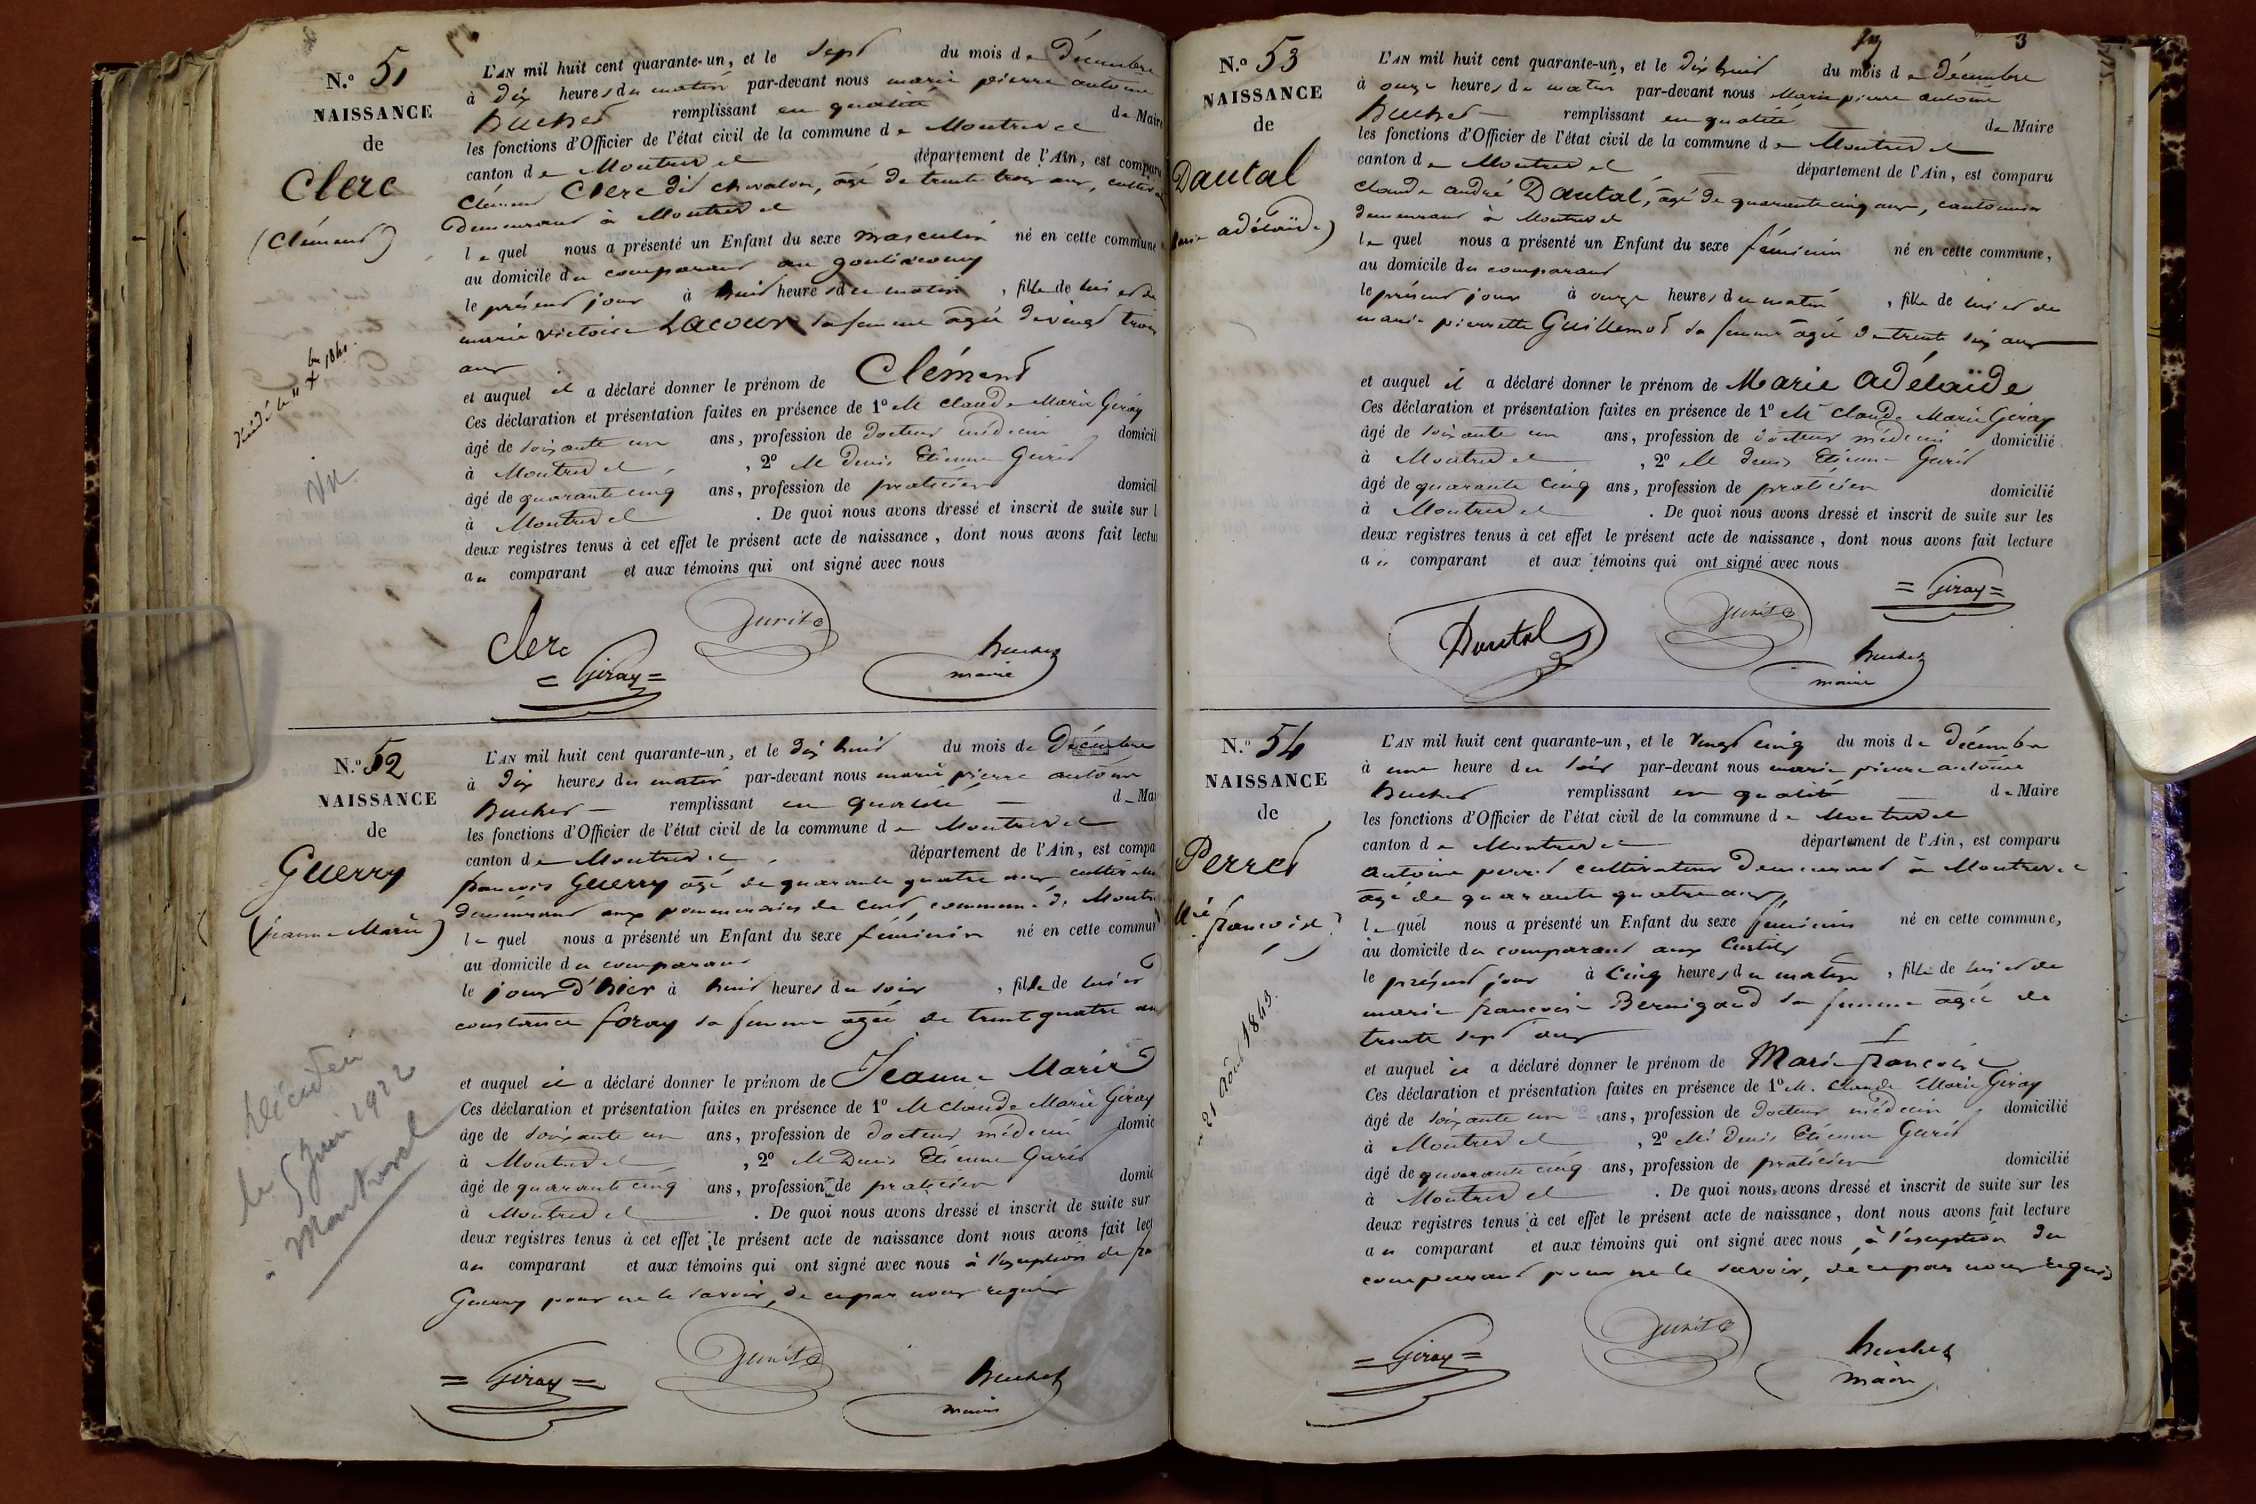 N.º 51
NAISSANCE
de
Clerc
(Clément)
Vu
L'AN mil huit cent quarante-un, et le sept du mois de décembre
à dix heures du matin par-devant nous marie pierre antoine
Buchet remplissant en qualité de Maire
les fonctions d'Officier de l'état civil de la commune de Montrevel
canton de Montrevel département de l'Ain, est comparu
Clément Clerc dit chevalon, âgé de trente trois ans,
demeurant à Montrevel
lequel nous a présenté un Enfant du sexe masculin né en cette commune
au domicile du comparant au
le présent jour à huit heures du matin, fils de lui et de
marie victoire Lacour sa femme agée de vingt trois
ans
et auquel il a déclaré donner le prénom de Clément
Ces déclaration et présentation faites en présence de 1º M claude Marie Giray
âgé de soixante un ans, profession de docteur médecin domicil
à Montrevel, 2º M Denis Etienne Gurit
âgé de quarante cinq ans, profession de praticien domicil
à Montrevel. De quoi nous avons dressé et inscrit de suite sur l
deux registres tenus à cet effet le présent acte de naissance, dont nous avons fait lectu
au comparant et aux témoins qui ont signé avec nous
Clerc
Gurit
= Giray =
Buchet
maire
N.º 52
NAISSANCE
de
Guerry
(jeanne Marie)
Décédée
le 5 Juin 1922
à Montrevel
L'AN mil huit cent quarante-un, et le dix huit du mois de Décembre
à dix heures du matin par-devant nous marie pierre antoine
Buchet remplissant en qualité d Mai
les fonctions d'Officier de l'état civil de la commune de Montrevel
canton de Montrevel département de l'Ain, est compa
francois Guerry agé de quarante quatre ans cultivateur
demeurant aux de commune de Montre
lequel nous a présenté un Enfant du sexe féminin né en cette commun
au domicile du comparant
le jour d'hier à huit heures du soir, fille de lui et
constance foray sa femme agée de trente quatre ans
et auquel il a déclaré donner le prénom de Jeanne Marie
Ces déclaration et présentation faites en présence de 1º M claude Marie Giray
âge de soixante un ans, profession de docteur médecin domic
à Montrevel, 2º M Denis Etienne Gurit
âgé de quarante cinq ans, profession de praticien domic
à Montrevel. De quoi nous avons dressé et inscrit de suite sur
deux registres tenus à cet effet le présent acte de naissance dont nous avons fait lect
au comparant et aux témoins qui ont signé avec nous à l'exception de
Guerry pour ne le savoir, de ce par nous requis
= Giray =
Gurit
Buchet
maire
3
N.º 53
NAISSANCE
de
Dautal
adélaïde)
L'AN mil huit cent quarante-un, et le dix huit du mois de décembre
à onze heures du matin par-devant nous Marie pierre antoine
Buchet remplissant en qualité de Maire
les fonctions d'Officier de l'état civil de la commune de Montrevel
canton de Montrevel département de l'Ain, est comparu
claude andré Dautal, âgé de quarante cinq ans, cantonnier
demeurant à Montrevel
lequel nous a présenté un Enfant du sexe féminin né en cette commune,
au domicile du comparant
le présent jour à onze heures du matin, fille de lui et de
marie pierrette Guillemot sa femme agée de trente six ans
et auquel il a déclaré donner le prénom de Marie Adélaïde
Ces déclaration et présentation faites en présence de 1º M claude Marie Giray
âgé de soixante un ans, profession de docteur médecin domicilié
à Montrevel, 2º M Denis Etienne Gurit
âgé de quarante cinq ans, profession de praticien domicilié
à Montrevel. De quoi nous avons dressé et inscrit de suite sur les
deux registres tenus à cet effet le présent acte de naissance, dont nous avons fait lecture
au comparant et aux témoins qui ont signé avec nous
= Giray =
Gurit
Dautal
Buchet
maire
N.º 54
NAISSANCE
de
Perret
Mie françoise)
21 Août 1843.
L'AN mil huit cent quarante-un, et le vingt cinq du mois de décembre
à une heure du soir par-devant nous marie pierre antoine
Buchet remplissant en qualité de Maire
les fonctions d'Officier de l'état civil de la commune de Montrevel
canton de Montrevel département de l'Ain, est comparu
antoine perret cultivateur demeurant à Montrevel
agé de quarante quatre ans,
lequel nous a présenté un Enfant du sexe féminin né en cette commune,
au domicile du comparant aux
le présent jour à cinq heures du matin, fille de lui et de
marie francoise Bernigaud sa femme agée de
trente sept ans
et auquel il a déclaré donner le prénom de Marie francoise
Ces déclaration et présentation faites en présence de 1º M. Claude Marie Giray
âgé de soixante un ans, profession de docteur médecin, domicilié
à Montrevel, 2º M. Denis Etienne Gurit
âgé de quarante cinq ans, profession de praticien domicilié
à Montrevel. De quoi nous avons dressé et inscrit de suite sur les
deux registres tenus à cet effet le présent acte de naissance, dont nous avons fait lecture
au comparant et aux témoins qui ont signé avec nous, à l'exception du
comparant pour ne le savoir, de ce par nous requis
= Giray =
Gurit
Buchet
maire